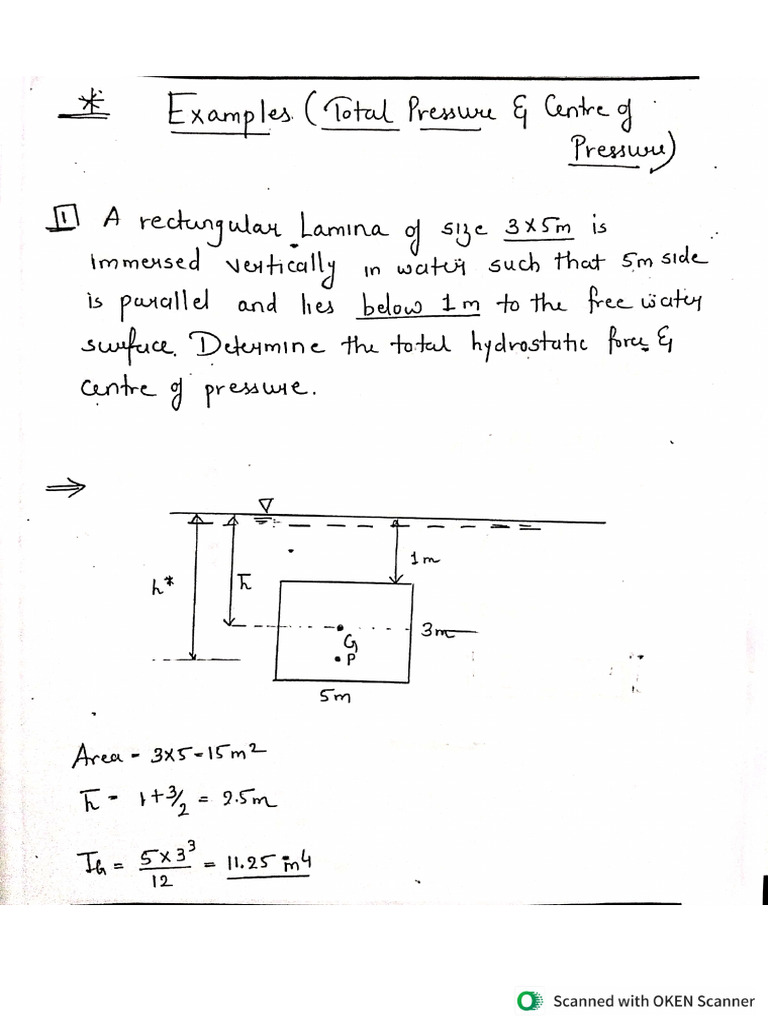 * Examples (Total Pressure & Centre of
Pressure)
1 A rectungular Lamina of size 3x5m is
immersed vertically in water such that 5m side
is parallel and lies below 1m to the free water
surface. Determine the total hydrostatic force &
centre of pressure.
⇒
1m
h*
h̄
3m
G
P
5m
Area = 3x5=15m²
h̄ = 1+3/2 = 2.5m
IG = 5x3³/12 = 11.25 m⁴
Scanned with OKEN Scanner